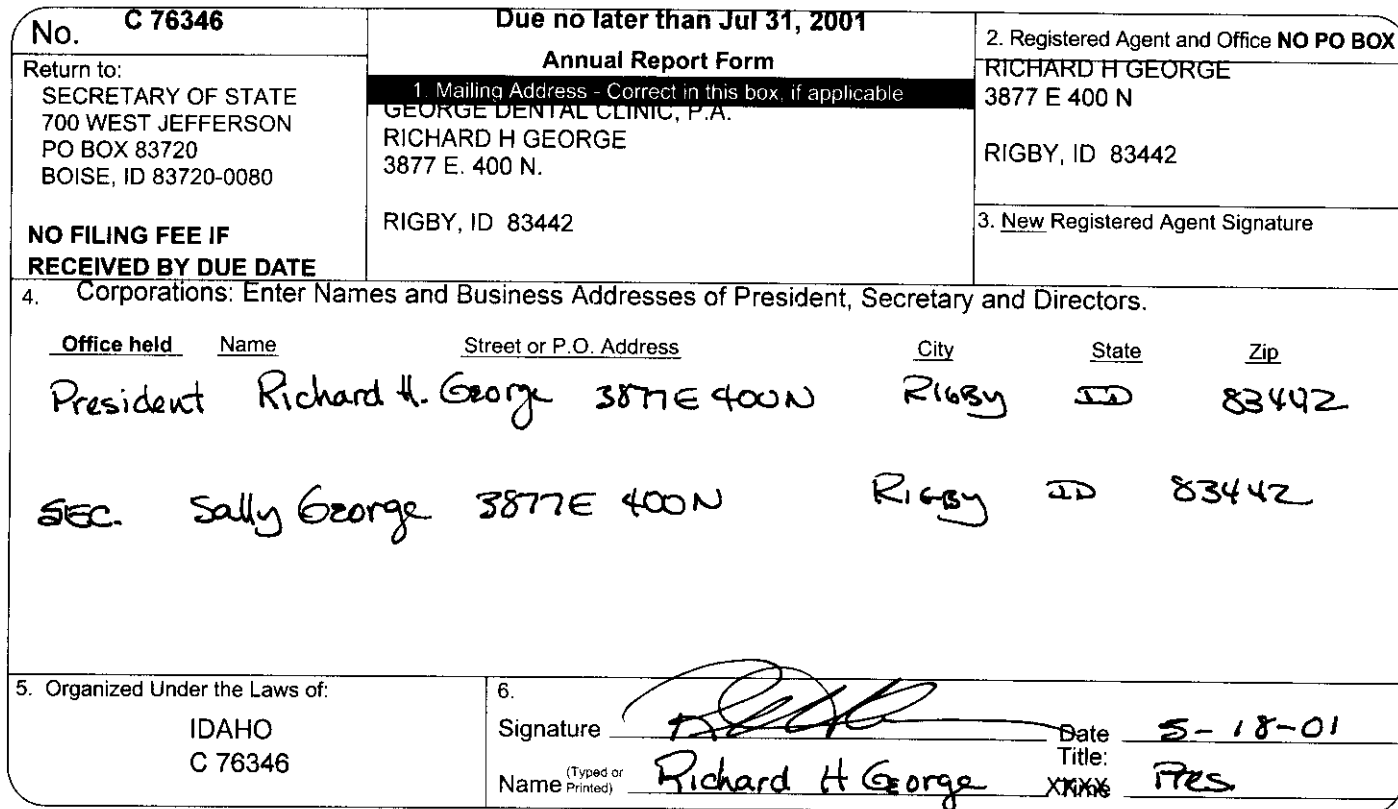 No. C 76346
Return to:
SECRETARY OF STATE
700 WEST JEFFERSON
PO BOX 83720
BOISE, ID 83720-0080
NO FILING FEE IF
RECEIVED BY DUE DATE
Due no later than Jul 31, 2001
Annual Report Form
1. Mailing Address - Correct in this box, if applicable
GEORGE DENTAL CLINIC, P.A.
RICHARD H GEORGE
3877 E. 400 N.
RIGBY, ID 83442
2. Registered Agent and Office NO PO BOX
RICHARD H GEORGE
3877 E 400 N
RIGBY, ID 83442
3. New Registered Agent Signature
4. Corporations: Enter Names and Business Addresses of President, Secretary and Directors.
Office held Name Street or P.O. Address City State Zip
President Richard H. George 3877 E 400 N Rigby ID 83442
SEC. Sally George 3877 E 400 N Rigby ID 83442
5. Organized Under the Laws of:
IDAHO
C 76346
6.
Signature Date 5-18-01
Title:
Name (Typed or Printed) Richard H George Pres.